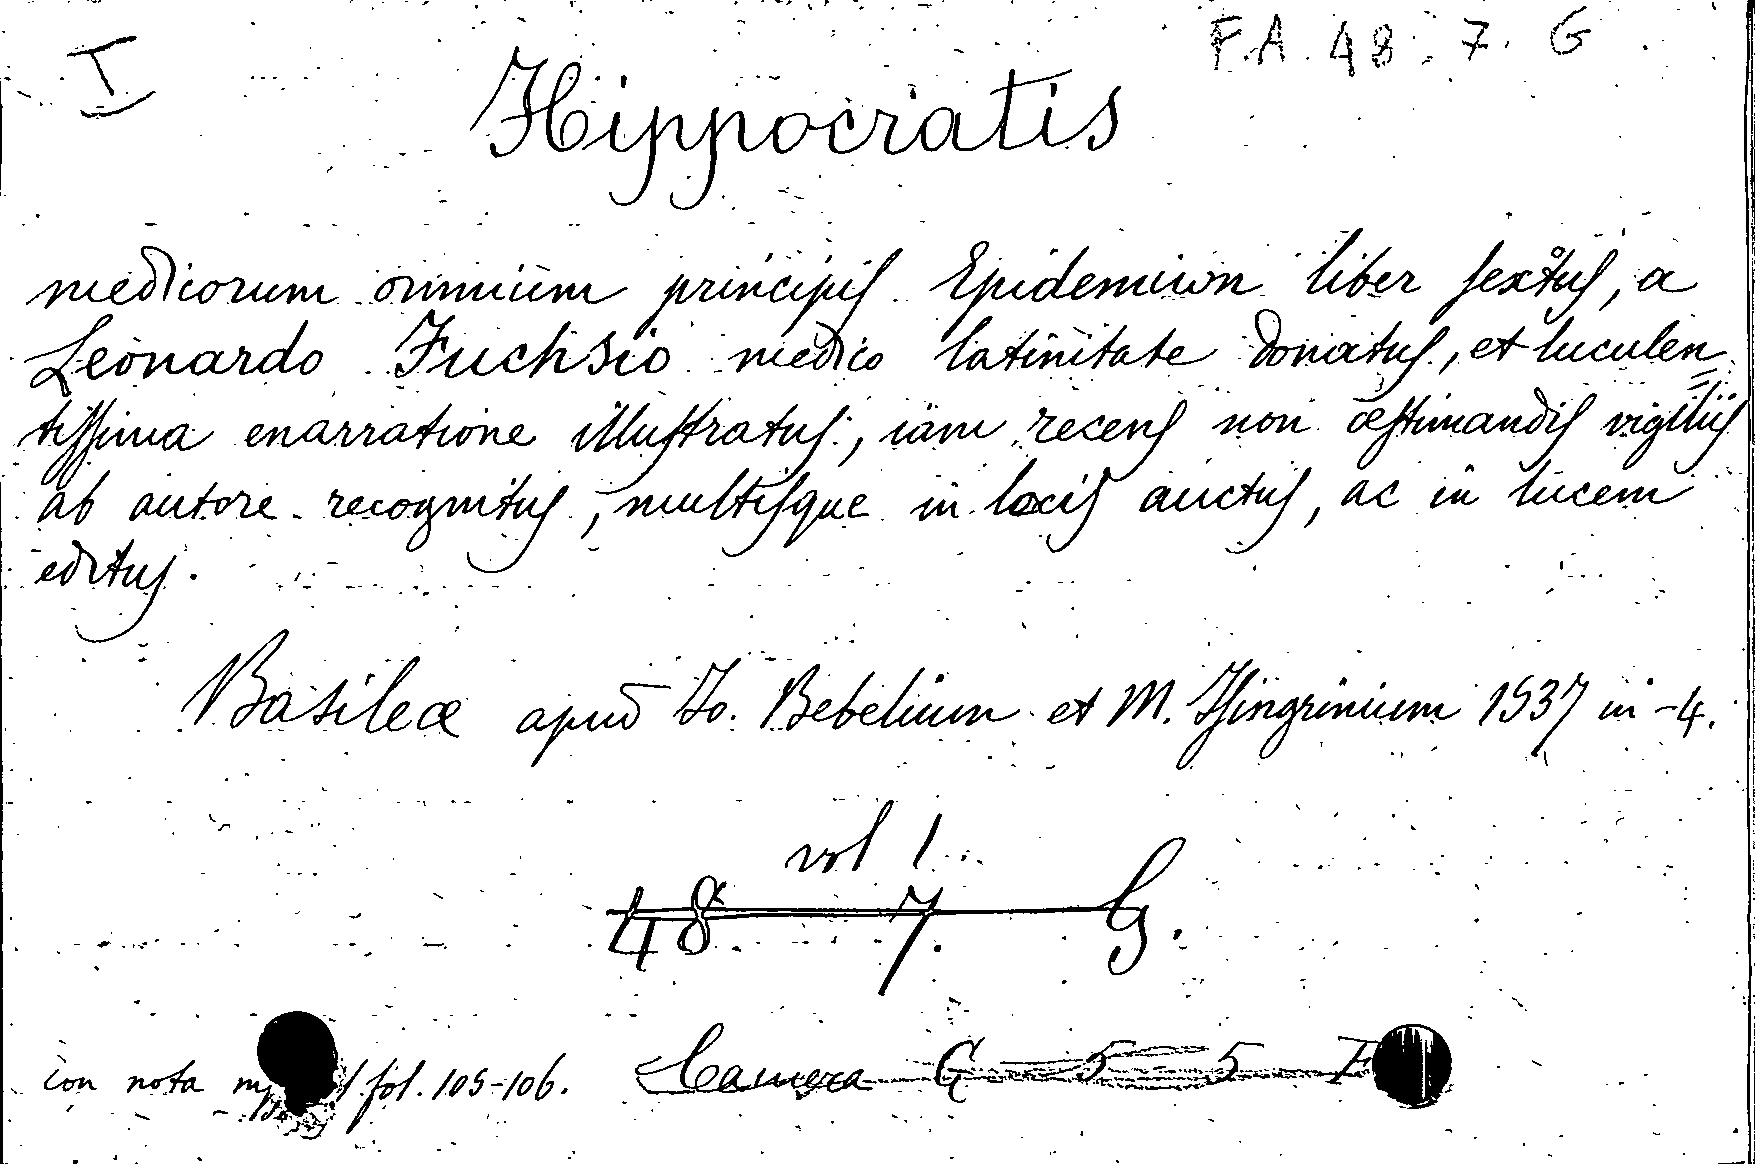 I
F.A. 48. 7. G
Hippocratis
medicorum omnium principis Epidemiωn liber sextus, a
Leonardo Fuchsio medico latinitate donatus, et luculen=
tissima enarratione illustratus, iam recens non æstimandis vigiliis
ab autore recognitus, multisque in locis auctus, ac in lucem
editus.
Basileæ apud Io. Bebelium et M. Isingrinium 1537 in-4.
vol 1.
48 7. G.
con nota fol. 105-106. Camera G 5 5 F